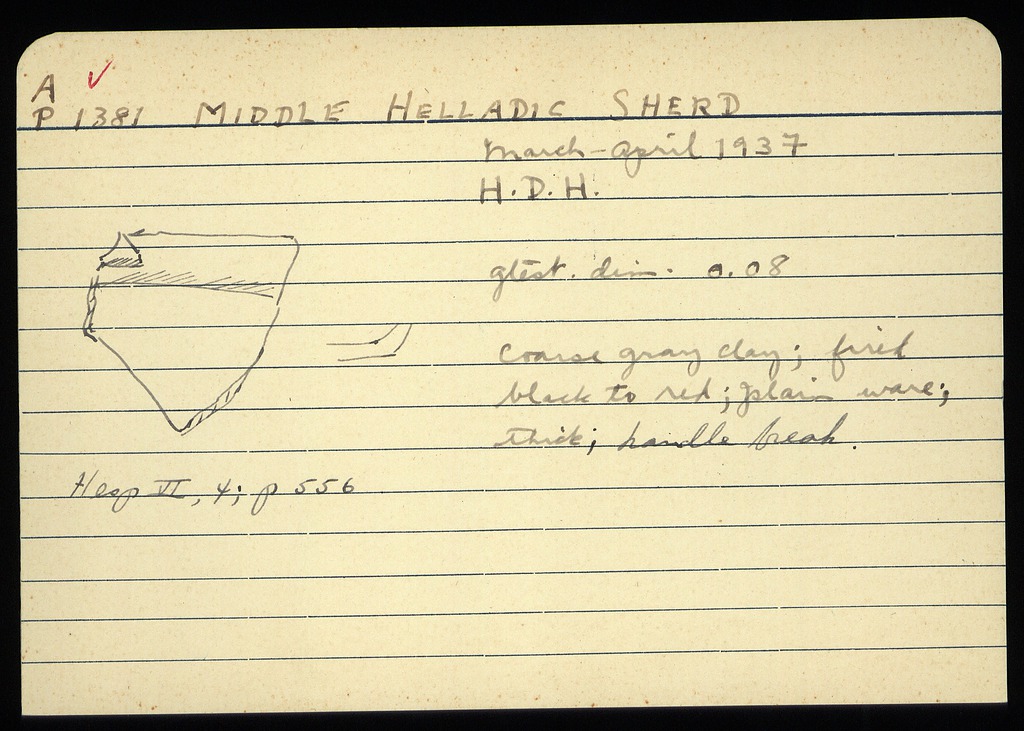 A
P 1381 MIDDLE HELLADIC SHERD
March-April 1937
H.D.H.
gtest. dim. 0.08
coarse gray clay; fired
black to red; plain ware;
thick; handle break.
Hesp VI, 4; p 556